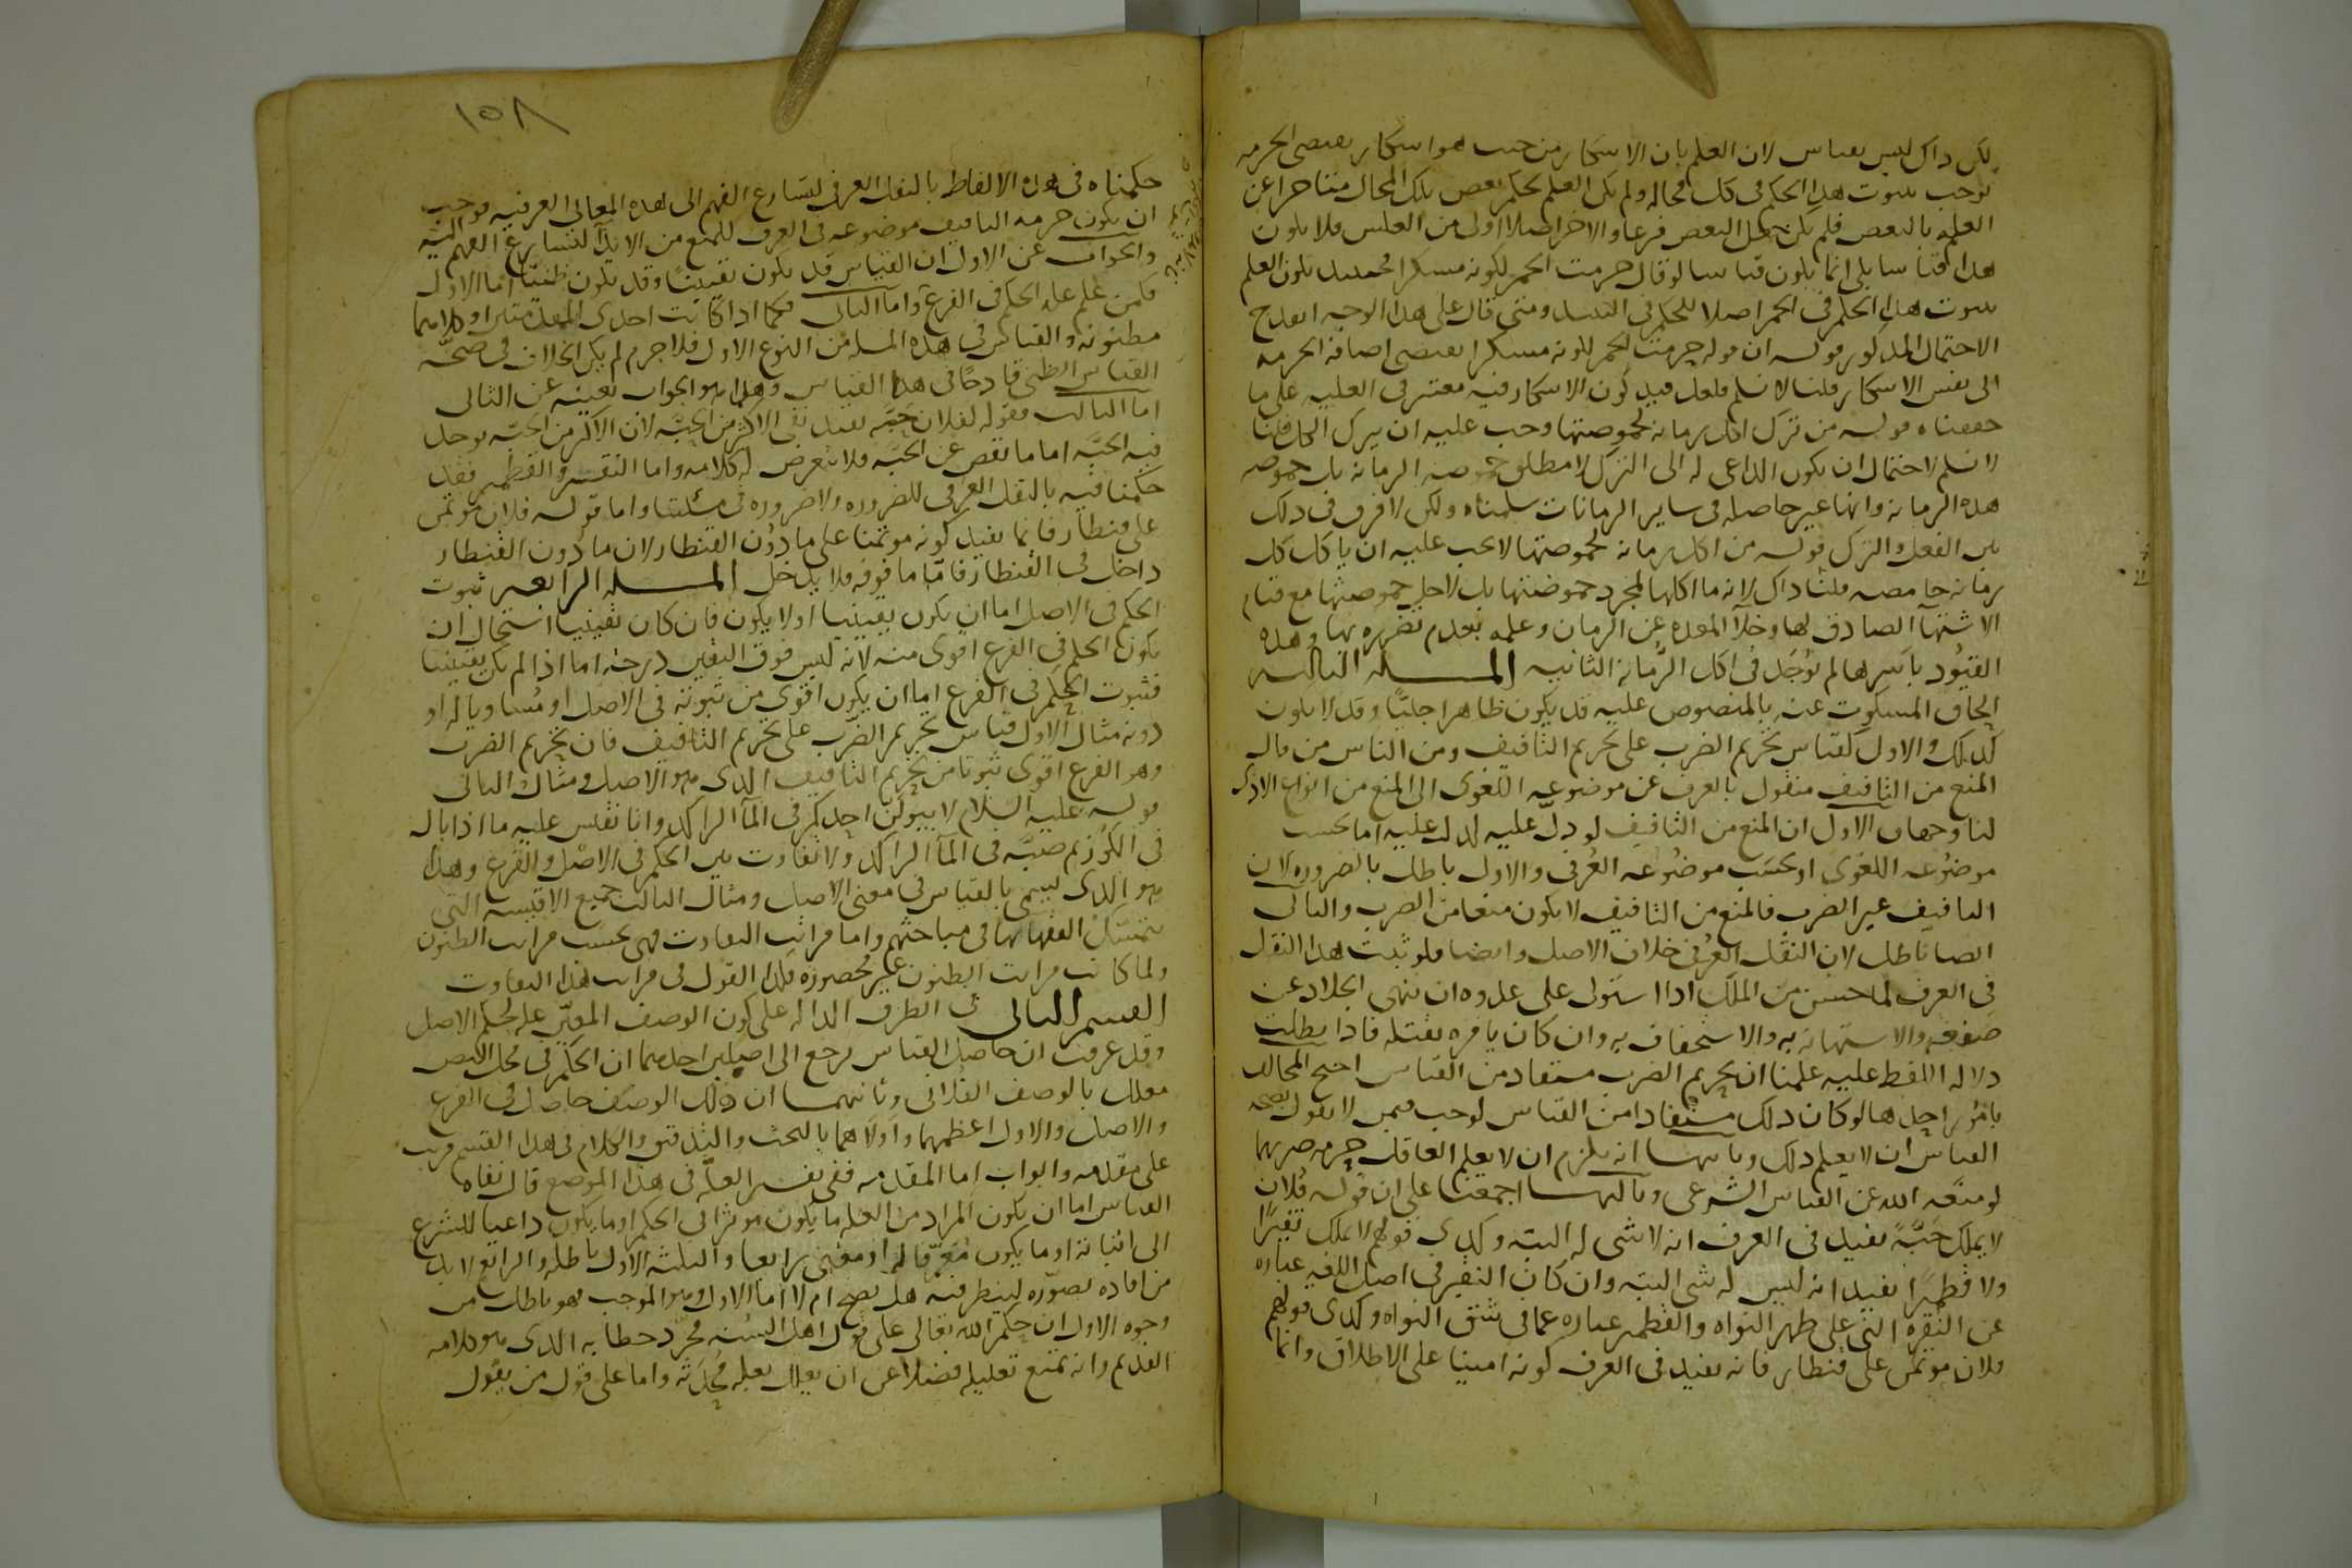 لكن ذاك ليس بقياس لان العلم بان الاسكار من حيث هو اسكار يقتضى الحرمه
يوجب ثبوت هذا الحكم فى كل محاله ولم يكن العلم بحكم بعض تلك المحال متاخرا عن
العلم بالبعض فلم يكن جعل البعض فرعا والاخر اصلا اولى من العكس فلا يكون
هذا قياسا بل انما يكون قياسا لو قال حرمت الخمر لكونه مسكرا فحينئذ يكون العلم
بثبوت هذا الحكم فى الخمر اصلا للحكم فى النبيذ ومتى قال على هذا الوجه انقدح
الاحتمال المذكور قوله ان قوله حرمت الخمر لكونه مسكرا يقتضى اضافه الحرمه
الى نفس الاسكار قلنا لا نسلم فلعل قيد كون الاسكار فيه معتبر فى العليه على ما
حققناه قوله من ترك اكل رمانه لحموضتها وجب عليه ان يترك الكل قلنا
لا نسلم لاحتمال ان يكون الداعى له الى الترك لا مطلق حموضه الرمانه بل حموضه
هذه الرمانه وانها غير حاصله فى ساير الرمانات سلمناه ولكن لا فرق فى ذلك
بين الفعل والترك قوله من اكل رمانه لحموضتها لا يجب عليه ان ياكل كل
رمانه حامضه قلنا ذاك لانه ما اكلها لمجرد حموضتها بل لاجل حموضتها مع قيام
الاشتهآ الصادق لها وخلآ المعده عن الرمان وعلمه بعدم تضرره بها وهذه
القيود باسرها لم توجد فى اكل الرمانه الثانيه المسله الثالثه
الحاق المسكوت عنه بالمنصوص عليه قد يكون ظاهرا جليا وقد لا يكون
كذلك والاول كقياس تحريم الضرب على تحريم التافيف ومن الناس من قال
المنع من التافيف منقول بالعرف عن موضوعه اللغوى الى المنع من انواع الاذى
لنا وجهان الاول ان المنع من التافيف لو دل عليه لدل عليه اما بحسب
موضوعه اللغوى او بحسب موضوعه العرفى والاول باطل بالضروره لان
التافيف غير الضرب فالمنع من التافيف لا يكون منعا من الضرب والثانى
ايضا باطل لان النقل العرفى خلاف الاصل وايضا فلو ثبت هذا النقل
فى العرف لما حسن من الملك اذا استولى على عدوه ان ينهى الجلاد عن
صفعه والاستهانه به والاستخفاف به وان كان يامره بقتله فاذا بطلت
دلاله اللفظ عليه علمنا ان تحريم الضرب مستفاد من القياس احتج المخالف
بامور احدها لو كان ذلك مستفادا من القياس لوجب فيمن لا يقول بصحه
القياس ان لا يعلم ذلك وثانيها انه يلزم ان لا يعلم العاقل حرمه ضربهما
لو منعه الله عن القياس الشرعى وثالثها اجمعنا على ان قوله فلان
لا يملك حبة يفيد فى العرف انه لا شى له البته وكذى قولهم لا يملك نقيرا
ولا قطميرا يفيد انه ليس له شى البته وان كان النقير فى اصل اللغه عباره
عن النقره التى على ظهر النواه والقطمير عباره عما فى شق النواه وكذى قولهم
فلان موتمن على قنطار فانه يفيد فى العرف كونه امينا على الاطلاق وانما
١٥٨
حكمنا فى هذه الالفاظ بالنقل العرفى لتسارع الفهم الى هذه المعانى العرفيه فوجب
ان يكون حرمه التافيف موضوعه فى العرف للمنع من الايذآ لتسارع الفهم اليه
والجواب عن الاول ان القياس قد يكون يقينيا وقد يكون ظنيا اما الاول
فكمن علم عله الحكم فى الفرع واما الثانى فكما اذا كانت احدى المقدمتين او كلاهما
مظنونه والقياس فى هذه المسله من النوع الاول فلا جرم لم يكن الخلاف فى صحه
القياس الظنى قادحا فى هذا القياس وهذا هو الجواب بعينه عن الثانى
اما الثالث فقوله لفلان حبه يفيد نفى الاكثر من الحبه لان الاكثر من الحبه يوجد
فيه الحبه اما ما نقص عن الحبه فلا يتعرض له كلامه واما النقير والقطمير فقد
حكمنا فيه بالنقل العرفى للضروره ولا ضروره فى مسئلتنا واما قوله فلان موتمن
على قنطار فانما يفيد كونه موتمنا على ما دون القنطار لان ما دون القنطار
داخل فى القنطار فاما ما فوقه فلا يدخل المسله الرابعه ثبوت
الحكم فى الاصل اما ان يكون يقينيا او لا يكون فان كان يقينيا استحال ان
يكون الحكم فى الفرع اقوى منه لانه ليس فوق اليقين درجه اما اذا لم يكن يقينيا
فثبوت الحكم فى الفرع اما ان يكون اقوى من ثبوته فى الاصل او مساويا له او
دونه مثال الاول قياس تحريم الضرب على تحريم التافيف فان تحريم الضرب
وهو الفرع اقوى ثبوتا من تحريم التافيف الذى هو الاصل ومثال الثانى
قوله عليه السلام لا يبولن احدكم فى المآ الراكد وانا نقيس عليه ما اذا بال
فى الكوز ثم صبه فى المآ الراكد ولا تفاوت بين الحكم فى الاصل والفرع وهذا
هو الذى يسمى بالقياس فى معنى الاصل ومثال الثالث جميع الاقيسه التى
يتمسك الفقها بها فى مباحثهم واما مراتب التفاوت فهى بحسب مراتب الظنون
ولما كانت مراتب الظنون غير محصوره فكذا القول فى مراتب هذا التفاوت
القسم الثانى فى الطرق الداله على كون الوصف المعين عله لحكم الاصل
وقد عرفت ان حاصل القياس يرجع الى اصلين احدهما ان الحكم فى محل النص
معلل بالوصف الفلانى وثانيهما ان ذلك الوصف حاصل فى الفرع
والاصل والاول اعظمهما واولاهما بالبحث والتدقيق والكلام فى هذا القسم مرتب
على مقدمه وابواب اما المقدمه ففى تفسير العله فى هذا الموضع قال نفاه
القياس اما ان يكون المراد من العله ما يكون موثرا فى الحكم او ما يكون داعيا للشرع
الى اثباته او ما يكون معرفا له او معنى رابعا والثلثه الاول باطله والرابع لا بد
من افاده تصوره لينظر فيه هل يصح ام لا اما الاول وهو الموجب فهو باطل من
وجوه الاول ان حكم الله تعالى على قول اهل السنه مجرد خطابه الذى هو كلامه
القديم وانه يمتنع تعليله فضلا عن ان يعلل بعله محدثه واما على قول من يقول